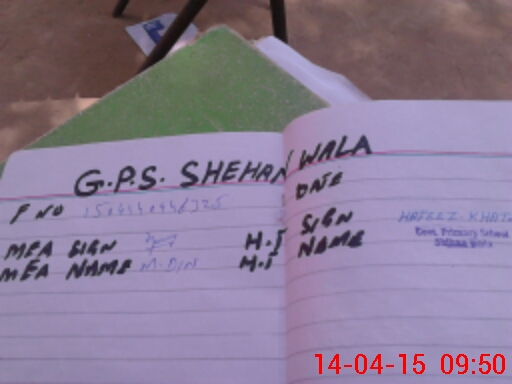 G.P.S. SHEHAN WALA
F NO DATE
MEA SIGN H.T SIGN
MEA NAME M-DIN H.T NAME HAFEEZ-KHATO
Govt. Primary School
14-04-15 09:50